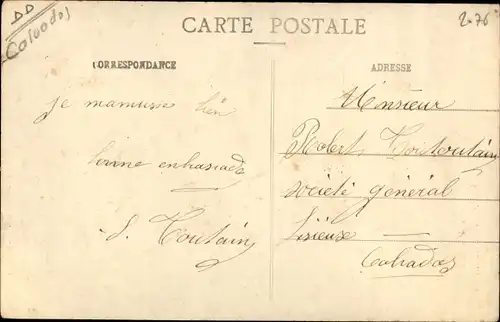 DD
Calvados
CARTE POSTALE
2.76
CORRESPONDANCE
je mamusse bien
bonne enbrassade
S. Toutain
ADRESSE
Monsieur
Robert Toutoutain
société général
Lisieuse
Calvados